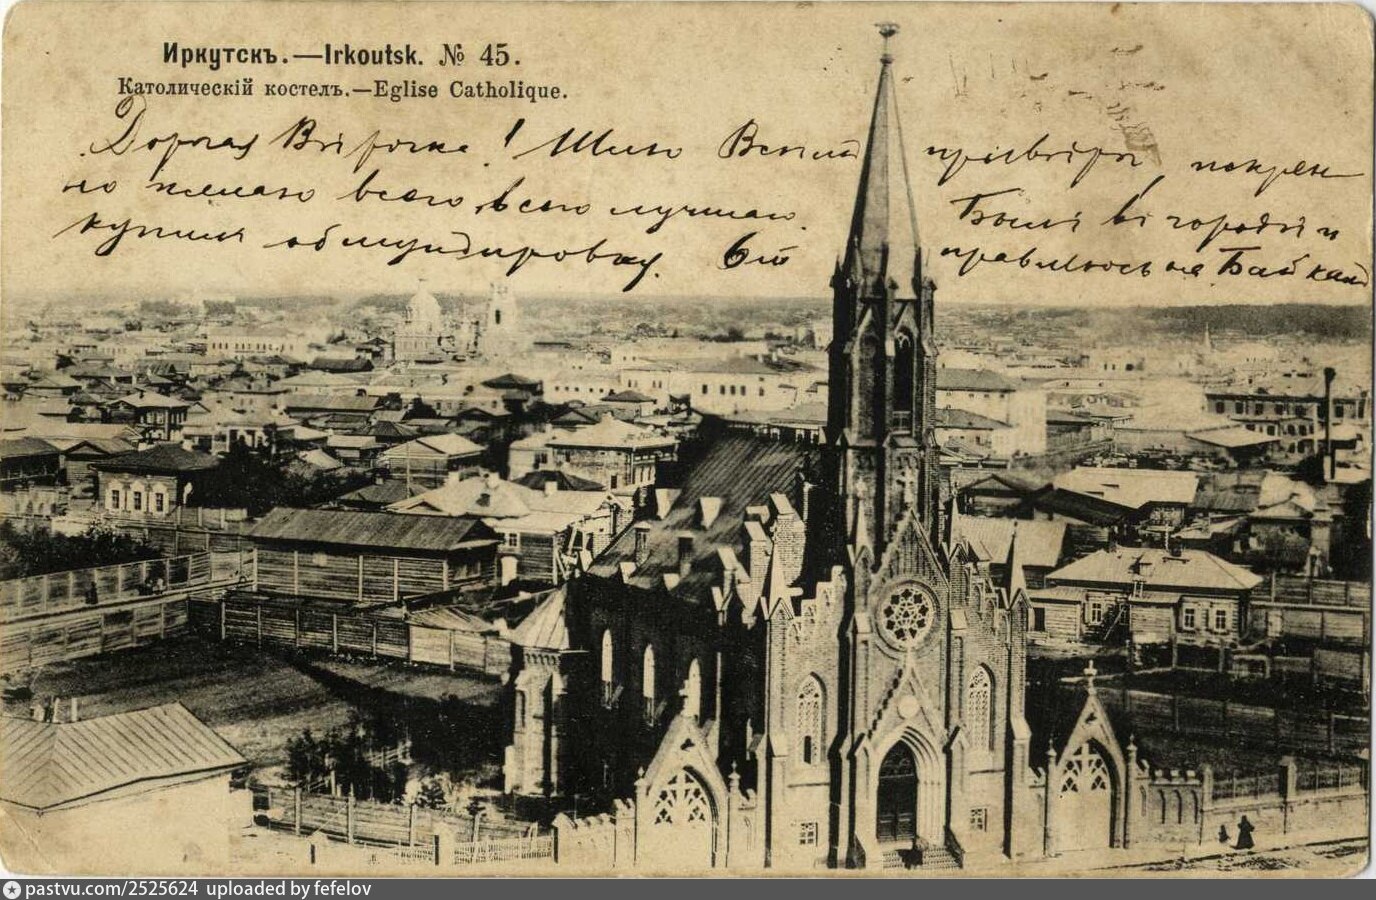 Иркутскъ.—Irkoutsk. № 45.
Католическій костелъ.—Eglise Catholique.
Дорогая Вѣрочка! Шлю Вамъ привѣтъ, искрен
но желаю всего, всего лучшаго. Были въ городѣ и
купили обмундировку. 6го правлюсь на Байкалъ
pastvu.com/2525624 uploaded by fefelov